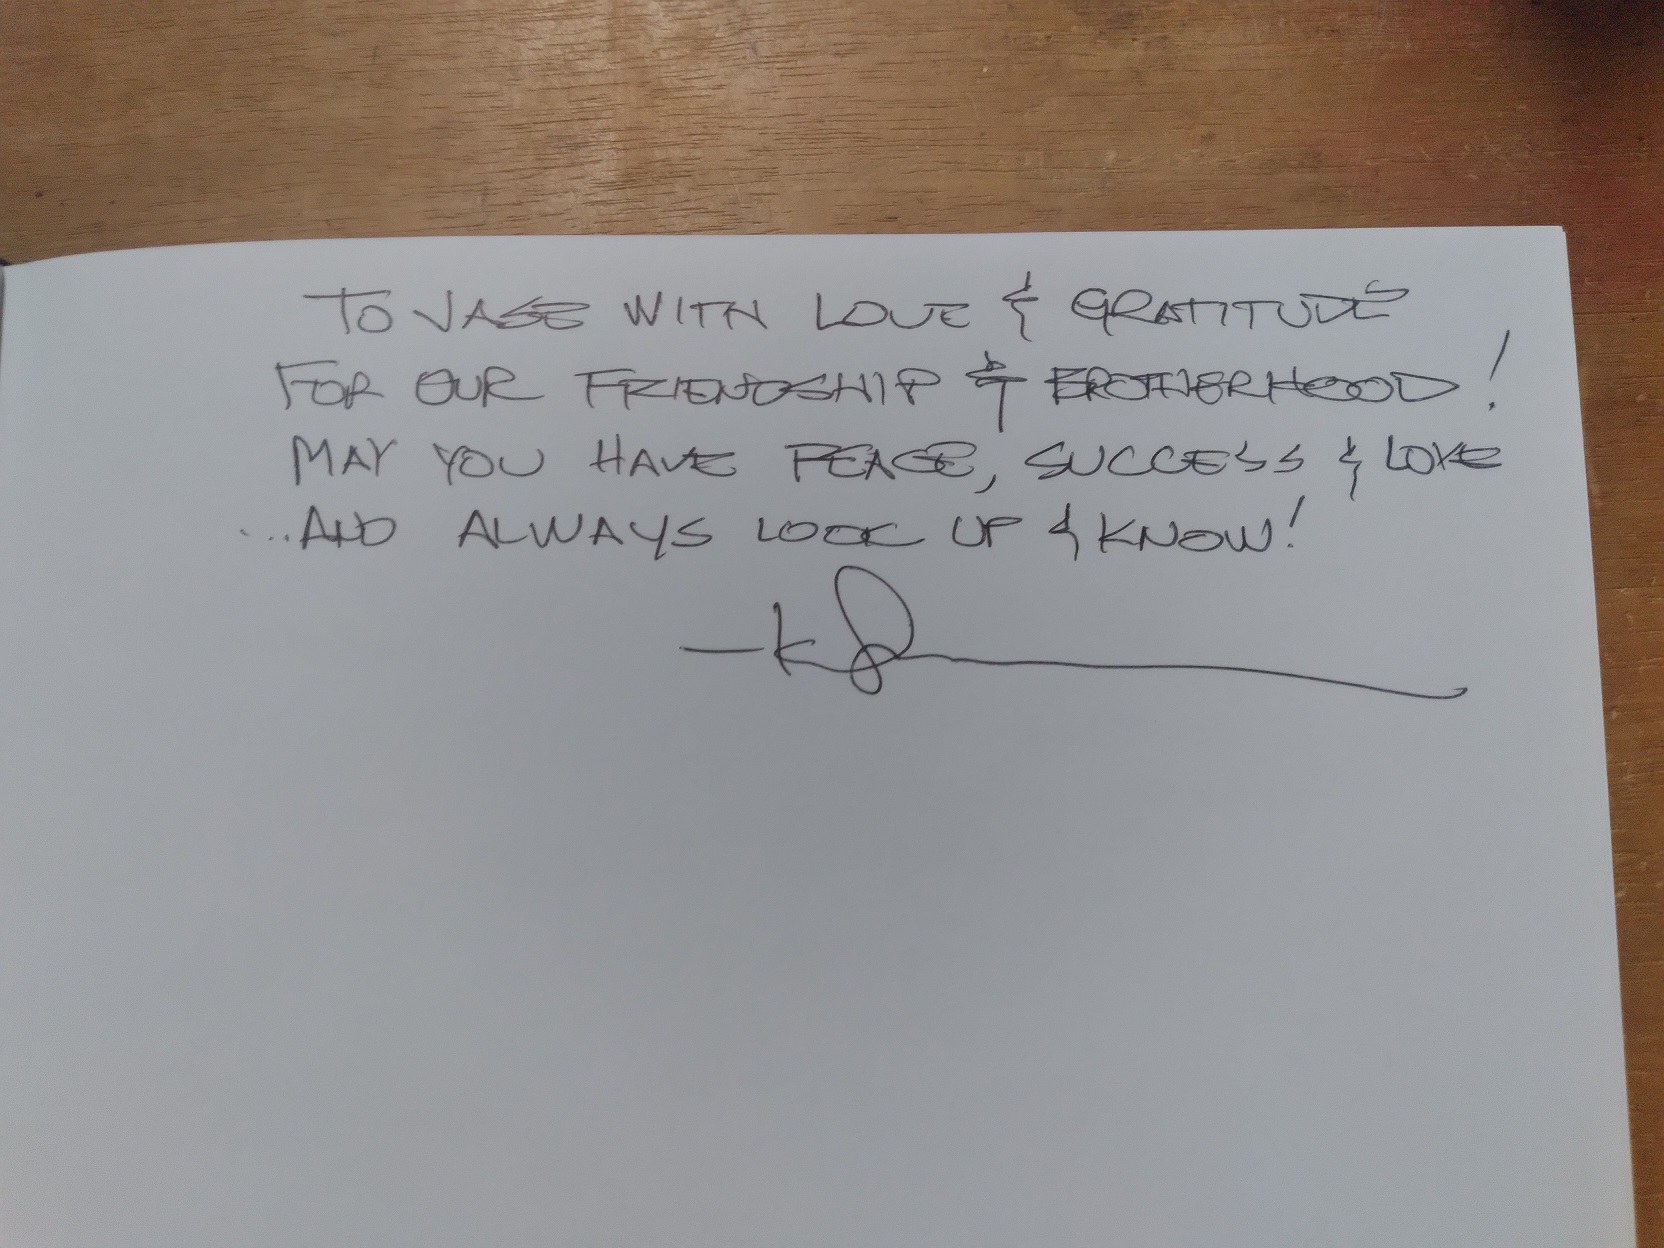 TO JASE WITH LOVE & GRATITUDE
FOR OUR FRIENDSHIP & BROTHERHOOD!
MAY YOU HAVE PEACE, SUCCESS & LOVE
...AND ALWAYS LOOK UP & KNOW!